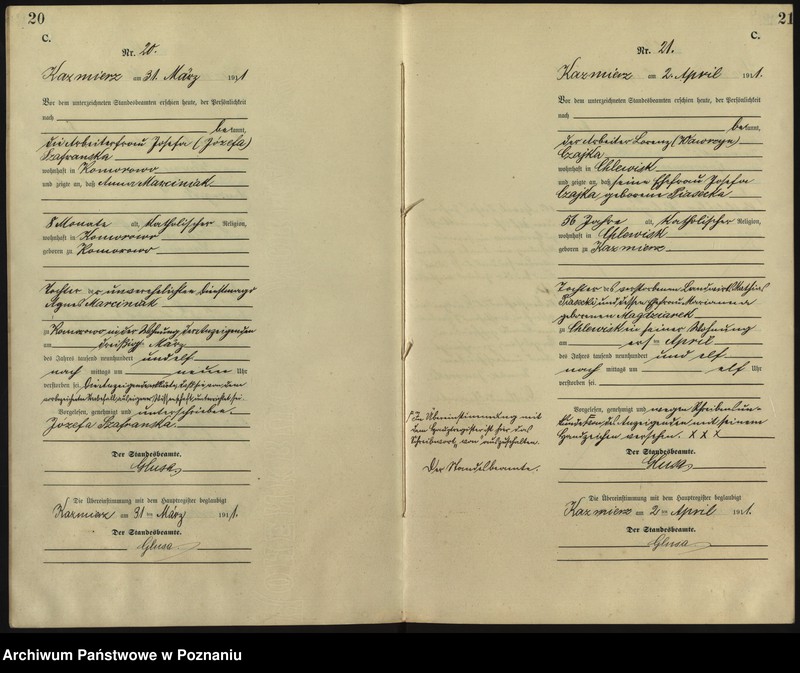 20
C.
Nr. 20.
Kazmierz am 31. März 1911
Vor dem unterzeichneten Standesbeamten erschien heute, der Persönlichkeit
nach
bekannt,
die Arbeiterfrau Josefa (Józefa)
Szafranska
wohnhaft in Komorowo
und zeigte an, daß Anna Marciniak
8 Monate alt, katholischer Religion,
wohnhaft in Komorowo
geboren zu Komorowo
Tochter der unverehelichten Dienstmagd
Agnes Marciniak
zu Komorowo in der Wohnung der Anzeigenden
am dreißig März
des Jahres tausend neunhundert und elf
nach mittags um neun Uhr
verstorben sei. Die Anzeigende erklärte, daß sie von dem
vorbezeichneten Sterbefall aus eigener Wissenschaft unterrichtet sei.
Vorgelesen, genehmigt und unterschrieben
Józefa Szafranska
Der Standesbeamte.
Glusa
Die Übereinstimmung mit dem Hauptregister beglaubigt
Kazmierz am 31 ten März 1911.
Der Standesbeamte.
Glusa
21
C.
Nr. 21.
Kazmierz am 2. April 1911.
Vor dem unterzeichneten Standesbeamten erschien heute, der Persönlichkeit
nach
bekannt,
der Arbeiter Lorenz (Wawrzyn)
Czajka
wohnhaft in Chlewisk
und zeigte an, daß seine Ehefrau Josefa
Czajka, geborene Piasecka
56 Jahre alt, katholischer Religion,
wohnhaft in Chlewisk
geboren zu Kazmierz
Tochter des verstorbenen Landwirt Mathias
Piasecki und dessen Ehefrau Marianna
geborenen Magdziarek
zu Chlewisk in seiner Wohnung
am ersten April
des Jahres tausend neunhundert und elf
nach mittags um elf Uhr
verstorben sei.
Vorgelesen, genehmigt und wegen Schreibensun-
kunde von dem Anzeigenden mit seinem
Handzeichen versehen. X X X
In Übereinstimmung mit
dem Hauptregister ist hier das
Schreibwort "von" auszuschalten.
Der Standesbeamte.
Der Standesbeamte.
Glusa
Die Übereinstimmung mit dem Hauptregister beglaubigt
Kazmierz am 2 ten April 1911.
Der Standesbeamte.
Glusa
Archiwum Państwowe w Poznaniu